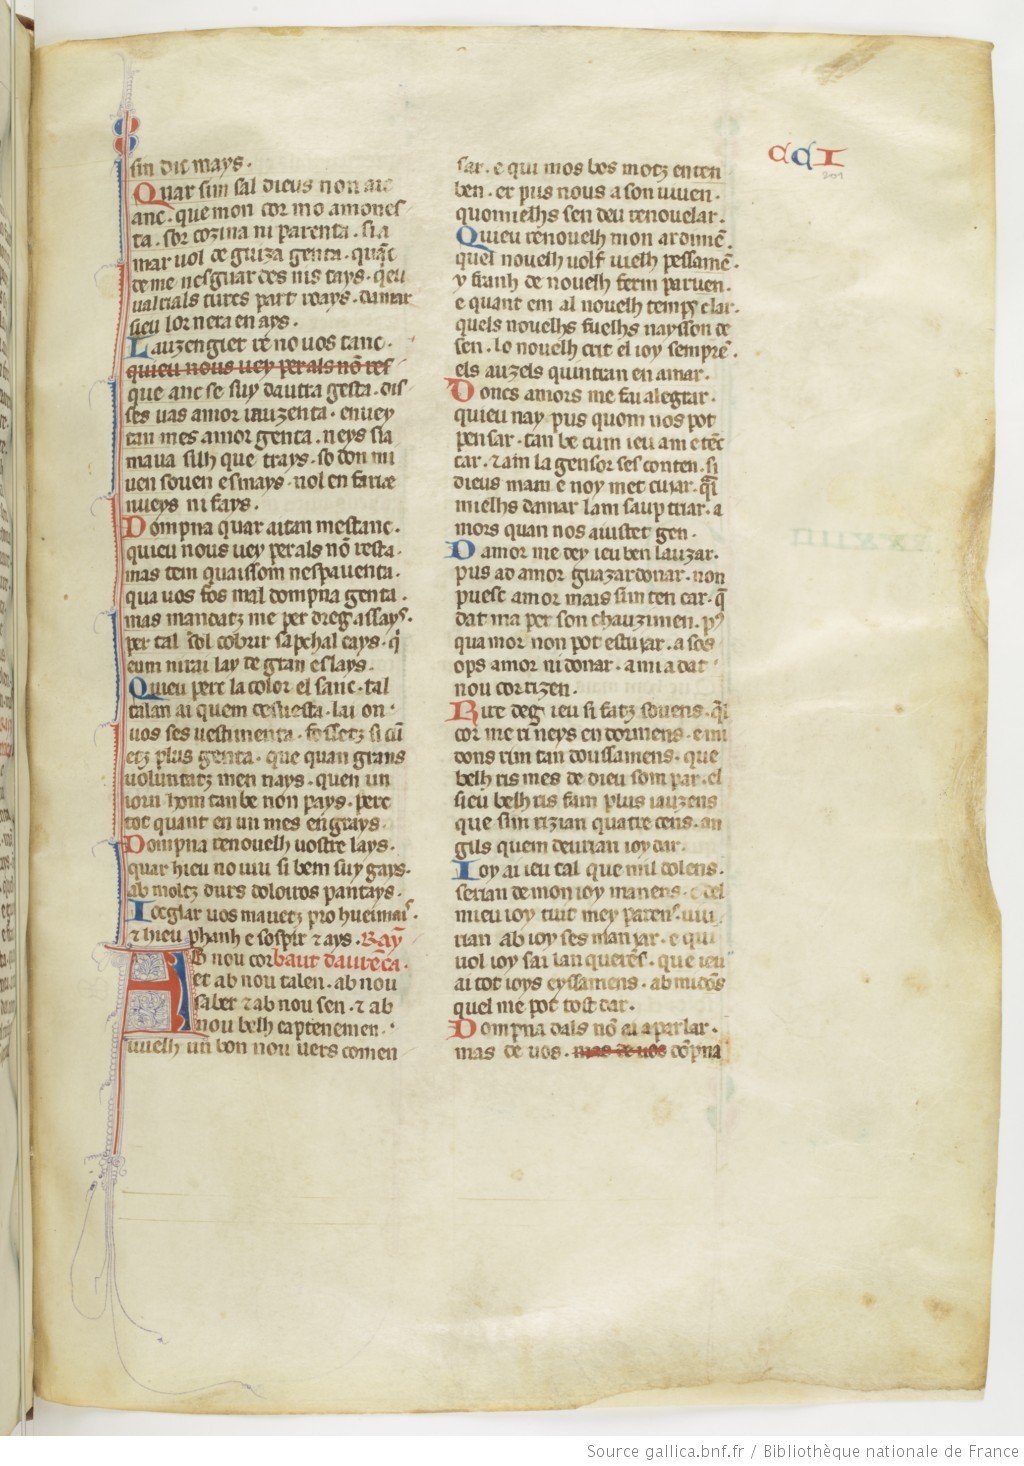 sin dic mays.
Quar sim sal dieus non aic
anc. que mon cor mo amones
ta. sor cozina ni parenta. si a
mar uol de guiza genta. quãt
de me nesguardes nis tays. q̃eu
ual tals tures part roays. damar
sieu lor neta en ays.
Lauzengier re no uos tanc.
quieu nous uey per als nõ res
que anc se suy dautra gesta. dis
ses uas amor iauzenta. en uey
tan mes amor genta. neys sia
maua silh que trays. so don mi
uen souen esmays. nol en fariæ
nueys ni fays.
Dompna quar aitan mestanc.
quieu nous uey per als nõ resta.
mas tem quaissom nespauenta.
qua uos fos mal dompna genta.
mas mandatz me per dreg assays.
per tal sol cobrir sapchal cays. q̃
eum nirai lay de gran eslays.
Quieu pert la color el sanc. tal
talan ai quem desuesta. lai on
uos ses uestimenta. fossetz si cũ
etz plus genta. que quan grans
uoluntatz men nays. quen un
iorn hom tan be non pays. pert
tot quant en un mes engrays.
Dompna renouelh uostre lays.
quar hieu no uiu si bem suy gays.
ab moltz durs doloiros pantays.
Ioglar uos mauetz pro hueimais.
⁊ hieu planh e sospir ⁊ ays. Raȳ
AB nou cor baut daurẽca.
et ab nou talen. ab nou
saber ⁊ ab nou sen. ⁊ ab
nou belh captenemen.
uuelh un bon nou uers comen
CCI
201
sar. e qui mos bos motz enten
ben. er pus nous a son uiuen.
quom ielhs sen deu renouelar.
Quieu renouelh mon ardimẽ.
quel nouelh uolf uielh pessamẽ.
y franh de nouelh ferm paruen.
e quant em al nouelh temps clar.
quels nouelhs fuelhs naysson de
sen. lo nouelh crit el ioy semprẽ.
els auzels quintran en amar.
Doncs amors me fai alegrar.
quieu nay pus quom nos pot
pensar. tan be cum ieu am e tẽc
car. ⁊ am la gensor ses conten. si
dieus mam e noy met cuiar. q̃l
mielhs damar lam saup triar. a
mors quan nos aiustet gen.
Damor me dey ieu ben lauzar.
pus ad amor guazardonar. non
puesc amor mais sim ten car. q̃
dat ma per son chauzimen. ps
quamor non pot estuiar. a sos
ops amor ni donar. a mi a dat
nou cor rizen.
Rire deg ieu si fatz souens. q̃l
cor me ri neys en dormens. e mi
dons rim tan doussamens. que
belh ris mes de dieu som par. el
sieu belh ris fam plus iauzens
que sim rizian quatre cens. an
gils quem deurian ioy dar.
Ioy ai ieu tal que mil dolens.
serian de mon ioy manens. e del
mieu ioy tuit mey parens. uiu
rian ab ioy ses maniar. e qui
uol ioy sai lan querẽs. que ieu
ai tot ioys eyssamens. ab midõs
quel me pot tost dar.
Dompna dals nõ ai a parlar.
mas de uos. mas de uos dõpna
Source gallica.bnf.fr / Bibliothèque nationale de France